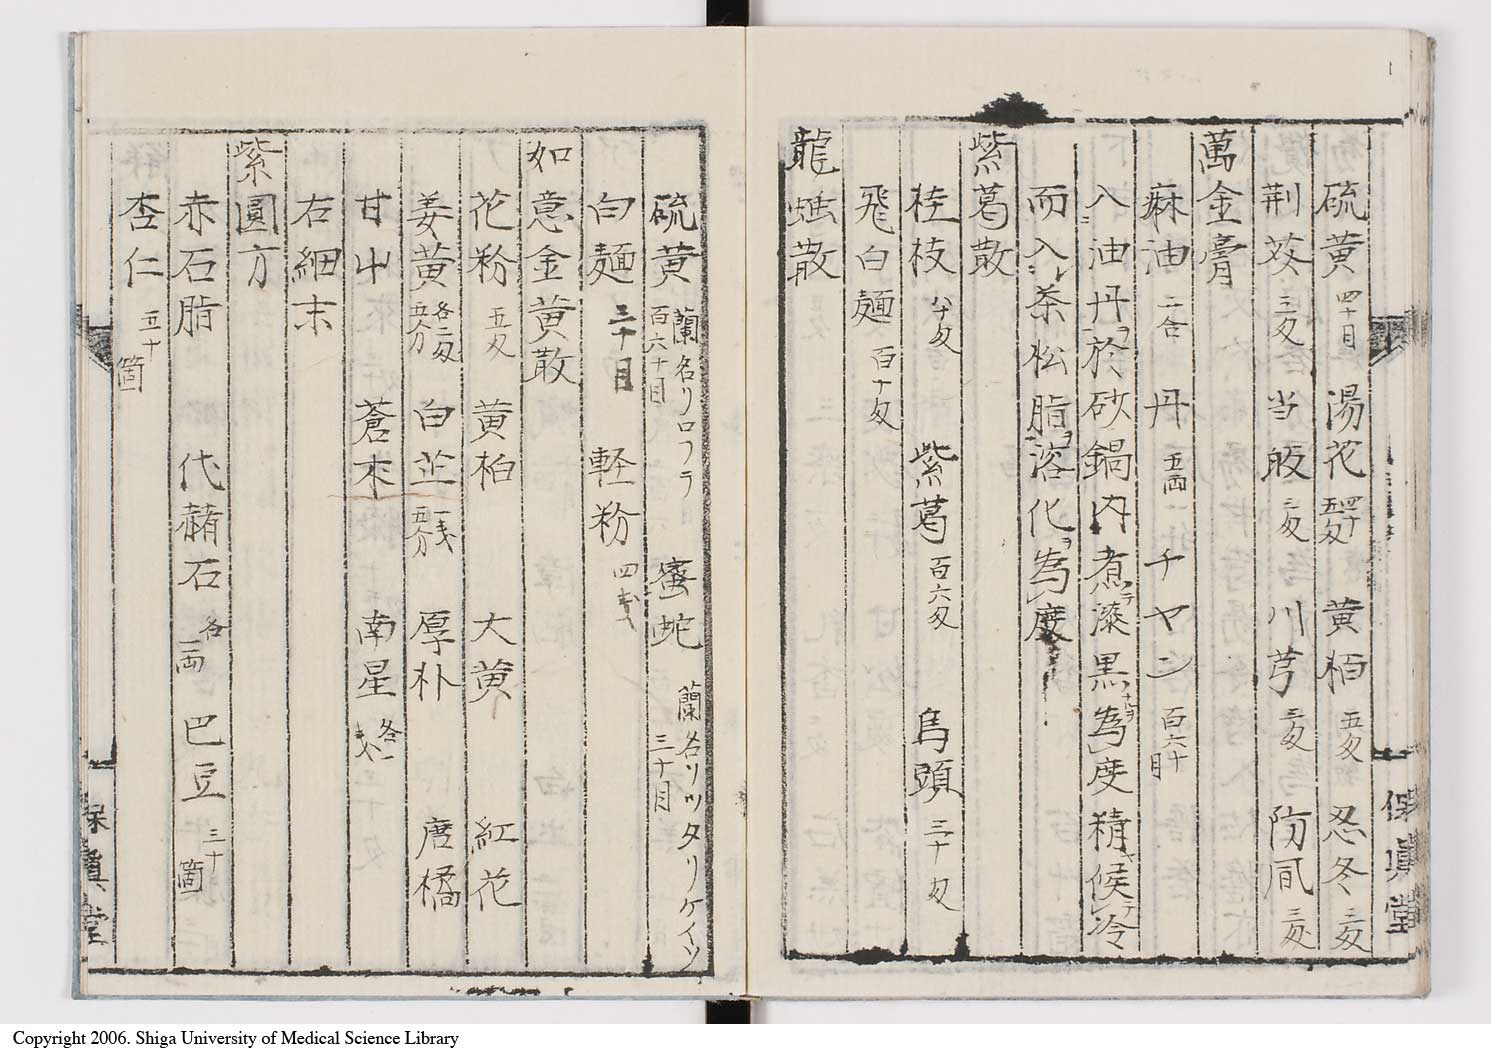 硫黄 四十目 湯花 四十五匁 黄栢 五匁 忍冬 三匁
荆芥 三匁 当皈 三匁 川芎 三匁 防風 三匁
萬金膏
麻油 二合 丹 五両 チヤン 百六十目
入油丹於砂鍋内煮テ漆黒為度精候テ冷
而入茶松脂溶化為度
紫葛散
桂枝 八十匁 紫葛 百六匁 烏頭 三十匁
飛白麺 百十匁
龍蛇散
硫黄 蘭名リロフラ 百六十目 蜜蛇 蘭名リツタリケイソ 三十目
白麺 三十目 軽粉 四戔
如意金黄散
花粉 五匁 黄柏 大黄 紅花
姜黄 各二匁五分 白芷 一戔五分 厚朴 唐橘
甘屮 蒼朮 南星 各一戔
右細末
紫圓方
赤石脂 代赭石 各一両 巴豆 三十箇
杏仁 五十箇
保眞堂
保眞堂
Copyright 2006. Shiga University of Medical Science Library